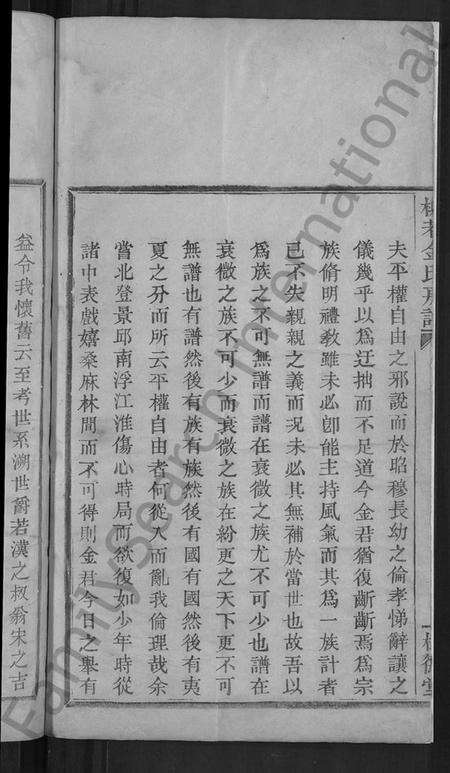 夫平權自由之邪說而於昭穆長幼之倫孝悌辭讓之
儀幾乎以爲迂拙而不足道今金君猶復齗齗焉爲宗
族脩明禮教雖未必卽能主持風氣而其爲一族計者
已不失親親之義而況未必其無補於當世也故吾以
爲族之不可無譜而譜在衰微之族尤不可少也譜在
衰微之族不可少而衰微之族在紛更之天下更不可
無譜也有譜然後有族有族然後有國有國然後有夷
夏之分而所云平權自由者何從入而亂我倫理哉余
當北登景邱南浮江淮傷心時局而欲復如少年時從
諸中表戲嬉桑麻林間而不可得則金君今日之舉有
益令我懷舊云至考世系溯世爵若漢之叔翁宋之吉
金氏房譜
FamilySearch International